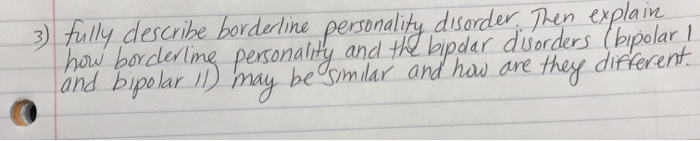 3) fully describe borderline personality disorder. Then explain
how borderline personality and the bipolar disorders (bipolar 1
and bipolar 11) may be similar and how are they different.